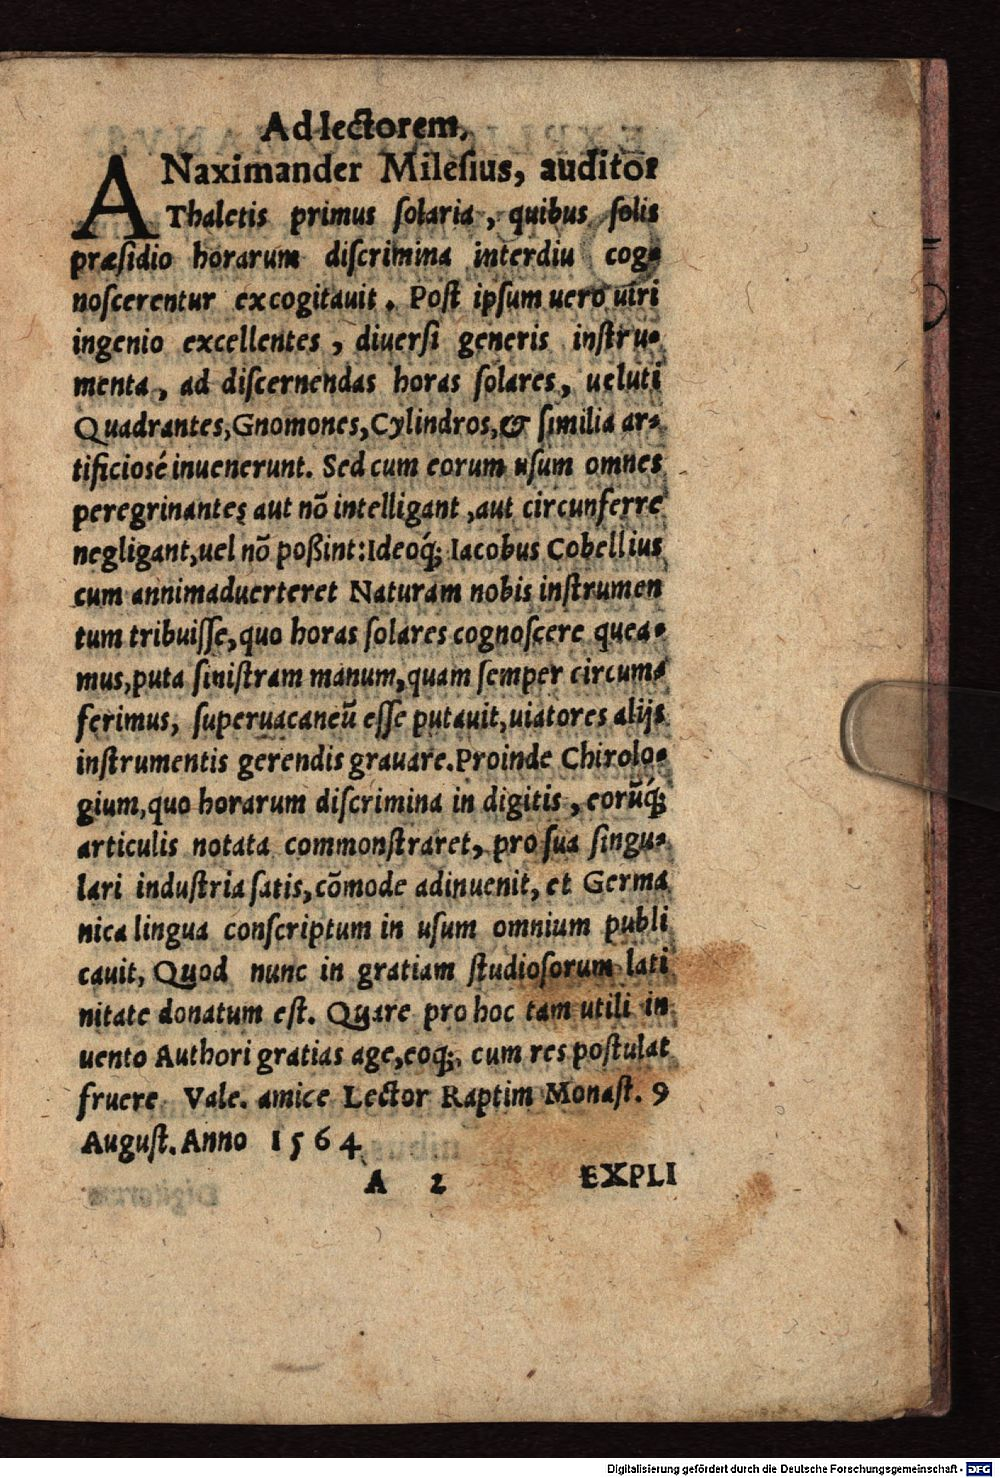 Ad lectorem,
ANaximander Milesius, auditor
Thaletis primus solaria, quibus solis
præsidio horarum discrimina interdiu cog-
noscerentur excogitauit. Post ipsum uero uiri
ingenio excellentes, diuersi generis instru-
menta, ad discernendas horas solares, ueluti
Quadrantes, Gnomones, Cylindros, & similia ar-
tificiosé inuenerunt. Sed cum eorum usum omnes
peregrinantes aut nõ intelligant, aut circunferre
negligant, uel nõ poßint: Ideoq́; Iacobus Cobellius
cum annimaduerteret Naturam nobis instrumen
tum tribuisse, quo horas solares cognoscere quea-
mus, puta sinistram manum, quam semper circum-
ferimus, superuacaneũ esse putauit, uiatores alijs
instrumentis gerendis grauare. Proinde Chirolo-
gium, quo horarum discrimina in digitis, eorũq́;
articulis notata commonstraret, pro sua singu-
lari industria satis, cõmode adinuenit, et Germa
nica lingua conscriptum in usum omnium publi
cauit, Quod nunc in gratiam studiosorum lati
nitate donatum est. Quare pro hoc tam utili in
uento Authori gratias age, eoq;, cum res postulat
fruere Vale. amice Lector Raptim Monast. 9
August. Anno 1564
A 2 EXPLI
Digitalisierung gefördert durch die Deutsche Forschungsgemeinschaft - DFG